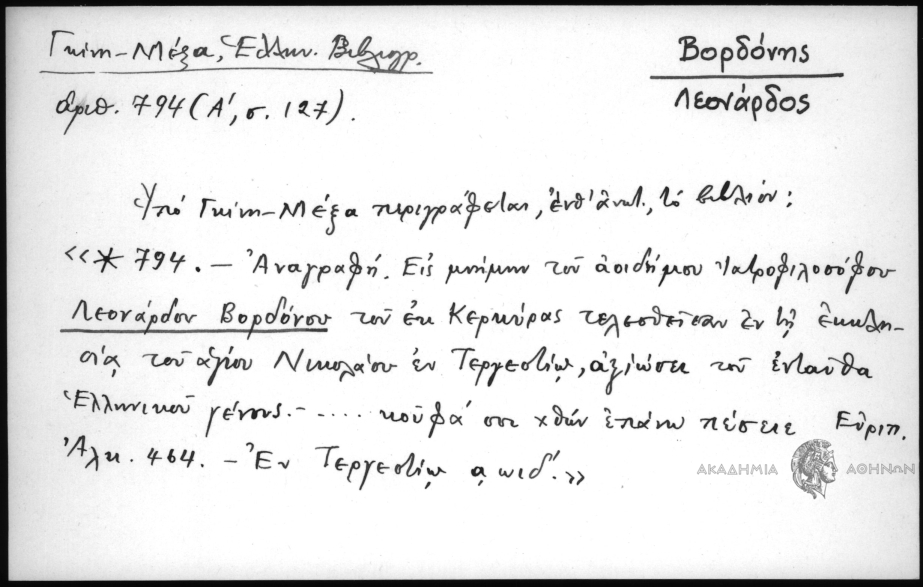 Γκίνη-Μέξα, Ἑλλην. Βιβλιογρ.
ἀριθ. 794 (Α΄, σ. 127).
Βορδόνης
Λεονάρδος
Ὑπό Γκίνη-Μέξα περιγράφεται, ἔνθ' ἀνωτ., τό βιβλίον:
«* 794. – Ἀναγραφή. Εἰς μνήμην τοῦ ἀοιδήμου Ἰατροφιλοσόφου
Λεονάρδου Βορδόνου τοῦ ἐκ Κερκύρας τελεσθεῖσαν ἐν τῇ ἐκκλη-
σίᾳ τοῦ ἁγίου Νικολάου ἐν Τεργεστίῳ, ἀξιώσει τοῦ ἐνταῦθα
Ἑλληνικοῦ γένους. – ..... κούφα σοι χθών ἐπάνω πέσειε Εὐριπ.
Ἀλκ. 464. – Ἐν Τεργεστίῳ ͵αωιδ΄.»
ΑΚΑΔΗΜΙΑ ΑΘΗΝΩΝ